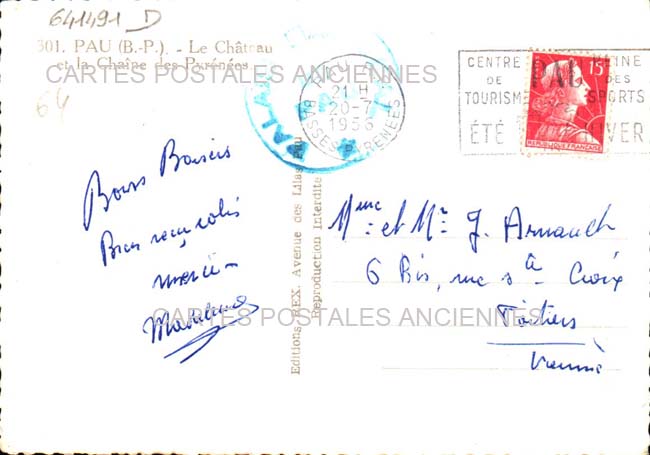 641491 D
301. PAU (B.-P.) - Le Château
et la Chaîne des Pyrénées
CARTES POSTALES ANCIENNES
64
PAU
21 H
20-7
1956
BASSES-PYRENEES
CENTRE
DE
TOURISME
ÉTÉ
PAU
REINE
DES
SPORTS
HIVER
15F
REPUBLIQUE FRANÇAISE
Bons Baisers
Bien reçu colis
merci -
Madeleine
Editions REX. Avenue des Lilas Pau
Reproduction Interdite
Mme et Mr J. Arnault
6 Bis, rue Ste Croix
CARTES POSTALES ANCIENNES
Poitiers
Vienne